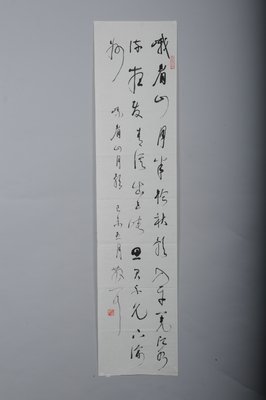 峨眉山月半輪秋影入平羌江水
流夜發清溪向三峽思君不見下渝
州
峨眉山月歌 己未五月